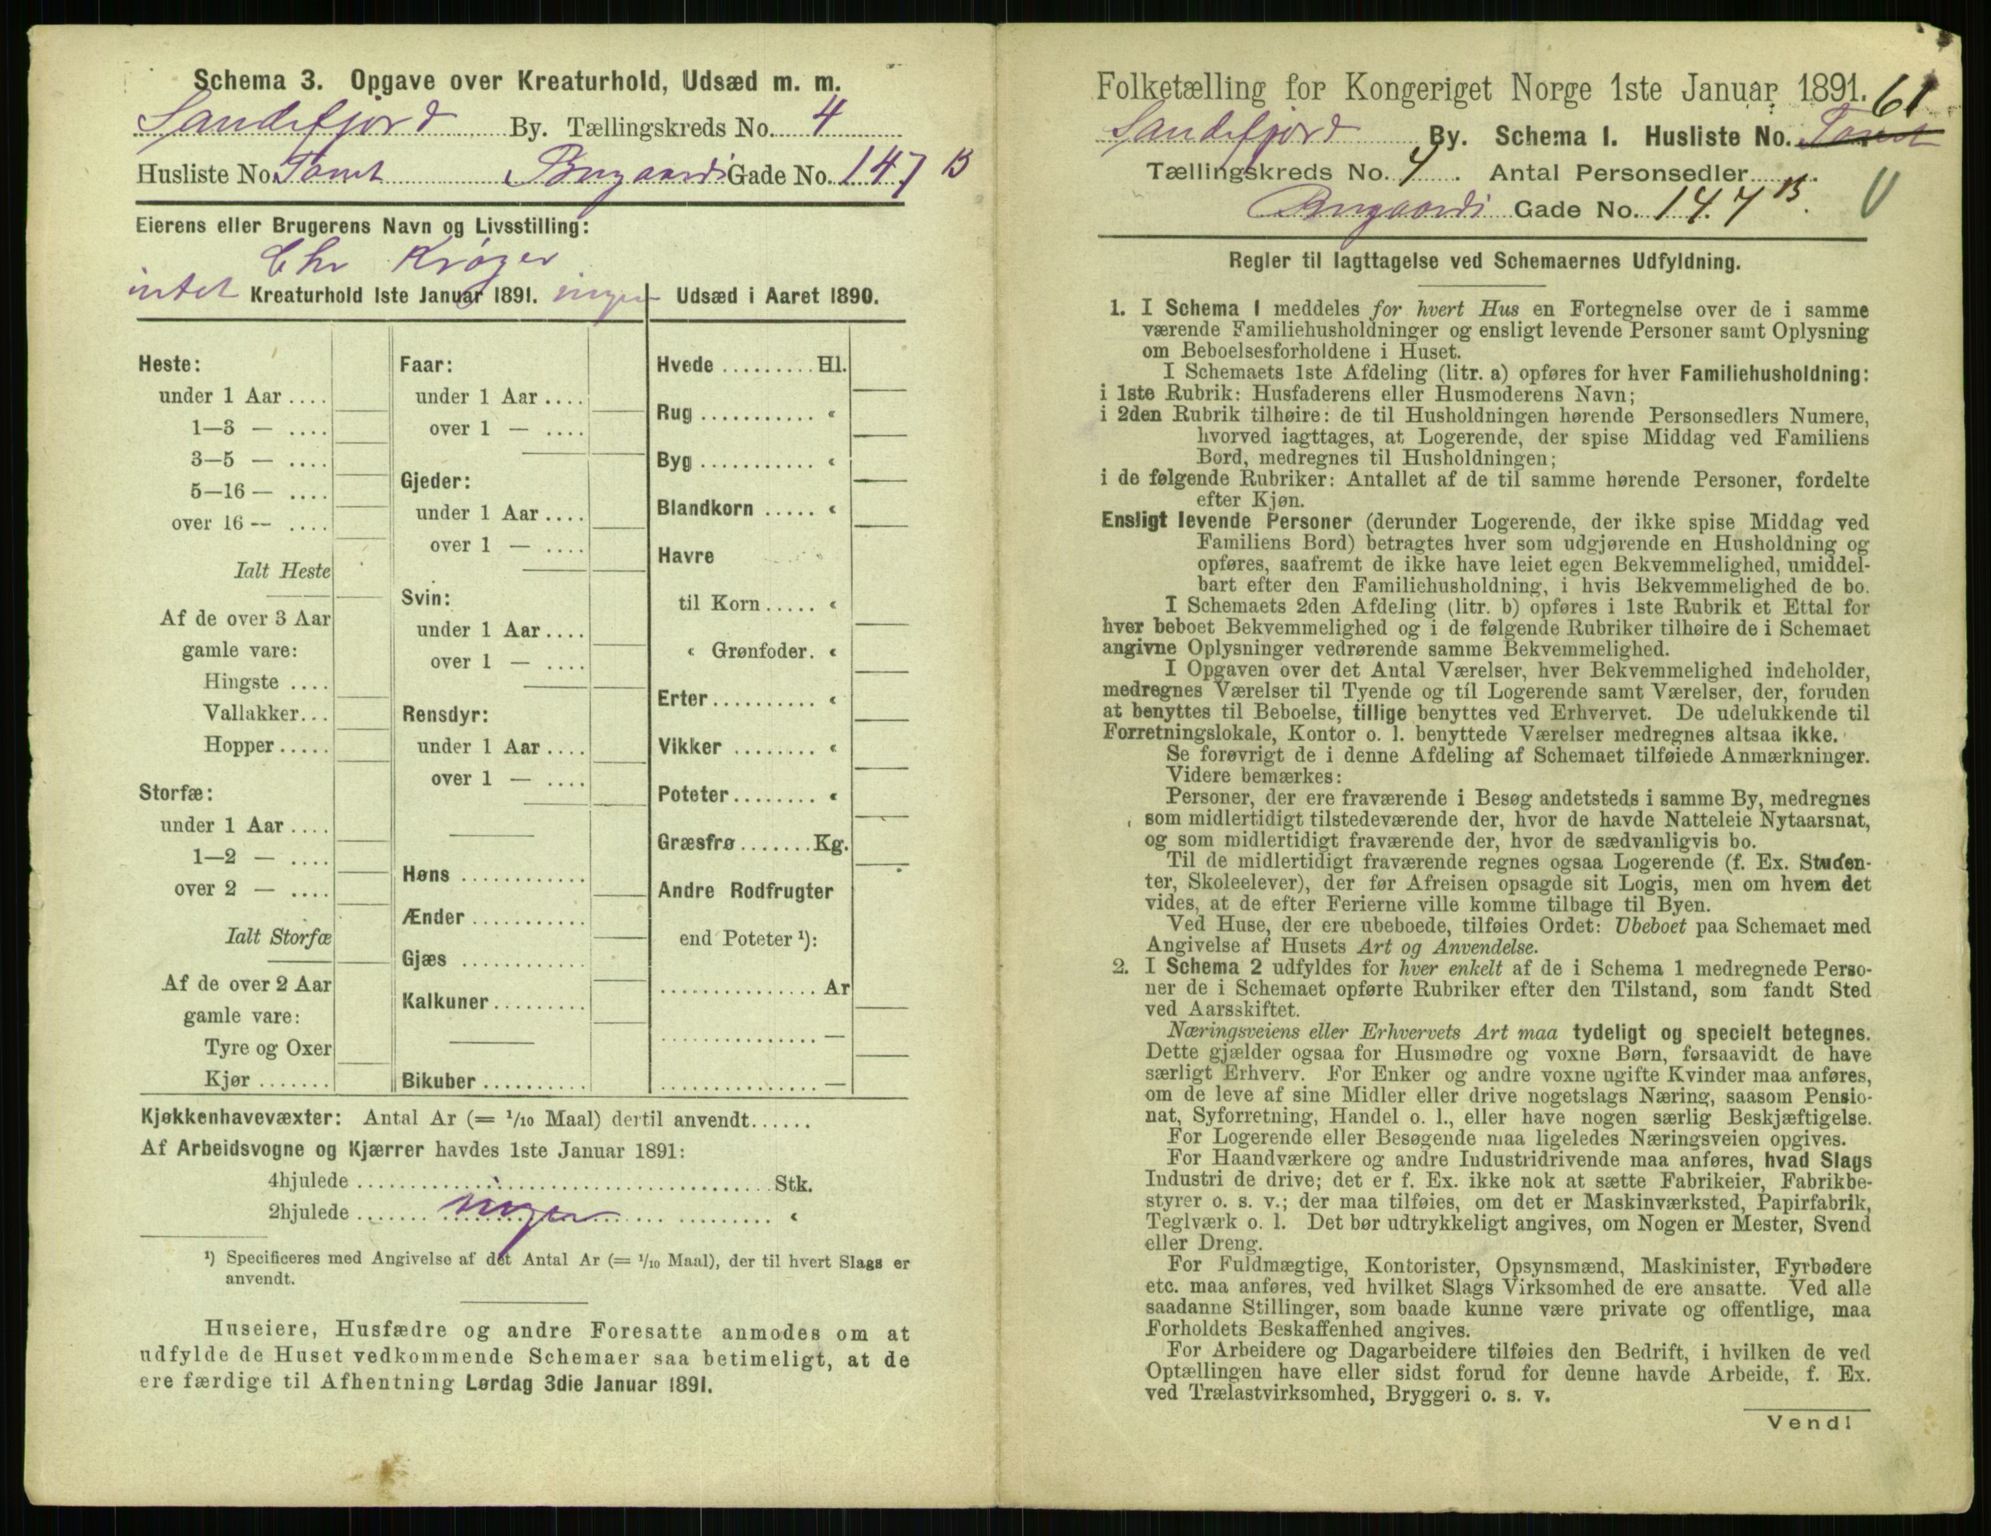 Schema 3. Opgave over Kreaturhold, Udsæd m. m.
Sandefjord By. Tællingskreds No. 4
Husliste No. Tomt Bugaards Gade No. 147 B
Eierens eller Brugerens Navn og Livsstilling:
Chr Krøger
intet Kreaturhold 1ste Januar 1891. ingen Udsæd i Aaret 1890.
Heste:
under 1 Aar ....
1—3 — ....
3—5 — ....
5—16 — ....
over 16 -- ....
Ialt Heste
Af de over 3 Aar
gamle vare:
Hingste ....
Vallakker...
Hopper.....
Storfæ:
under 1 Aar ....
1—2 — ....
over 2 — ....
Ialt Storfæ
Af de over 2 Aar
gamle vare:
Tyre og Oxer
Kjør .......
Faar:
under 1 Aar ....
over 1 — ....
Gjeder:
under 1 Aar ....
over 1 — ....
Svin:
under 1 Aar ....
over 1 — ....
Rensdyr:
under 1 Aar ....
over 1 — ....
Høns ............
Ænder ...........
Gjæs ............
Kalkuner.........
Bikuber ..........
Hvede ......... Hl.
Rug ........... «
Byg ........... «
Blandkorn ..... «
Havre
til Korn ..... «
« Grønfoder. «
Erter.......... «
Vikker ........ «
Poteter........ «
Græsfrø....... Kg.
Andre Rodfrugter
end Poteter ¹):
............... Ar
............... —
............... —
Kjøkkenhavevæxter: Antal Ar (= 1/10 Maal) dertil anvendt......
Af Arbeidsvogne og Kjærrer havdes 1ste Januar 1891:
4hjulede ........................................ Stk.
2hjulede ....... ingen ......... «
¹) Specificeres med Angivelse af det Antal Ar (= 1/10 Maal), der til hvert Slags er
anvendt.
Huseiere, Husfædre og andre Foresatte anmodes om at
udfylde de Huset vedkommende Schemaer saa betimeligt, at de
ere færdige til Afhentning Lørdag 3die Januar 1891.
Folketælling for Kongeriget Norge 1ste Januar 1891. 61
Sandefjord By. Schema 1. Husliste No. Tomt
Tællingskreds No. 4. Antal Personsedler........
Bugaards Gade No. 147 B.
Regler til Iagttagelse ved Schemaernes Udfyldning.
1. I Schema 1 meddeles for hvert Hus en Fortegnelse over de i samme
værende Familiehusholdninger og ensligt levende Personer samt Oplysning
om Beboelsesforholdene i Huset.
I Schemaets 1ste Afdeling (litr. a) opføres for hver Familiehusholdning:
i 1ste Rubrik: Husfaderens eller Husmoderens Navn;
i 2den Rubrik tilhøire: de til Husholdningen hørende Personsedlers Numere,
hvorved iagttages, at Logerende, der spise Middag ved Familiens
Bord, medregnes til Husholdningen;
i de følgende Rubriker: Antallet af de til samme hørende Personer, fordelte
efter Kjøn.
Ensligt levende Personer (derunder Logerende, der ikke spise Middag ved
Familiens Bord) betragtes hver som udgjørende en Husholdning og
opføres, saafremt de ikke have leiet egen Bekvemmelighed, umiddel-
bart efter den Familiehusholdning, i hvis Bekvemmelighed de bo.
I Schemaets 2den Afdeling (litr. b) opføres i 1ste Rubrik et Ettal for
hver beboet Bekvemmelighed og i de følgende Rubriker tilhøire de i Schemaet
angivne Oplysninger vedrørende samme Bekvemmelighed.
I Opgaven over det Antal Værelser, hver Bekvemmelighed indeholder,
medregnes Værelser til Tyende og til Logerende samt Værelser, der, foruden
at benyttes til Beboelse, tillige benyttes ved Erhvervet. De udelukkende til
Forretningslokale, Kontor o. l. benyttede Værelser medregnes altsaa ikke.
Se forøvrigt de i denne Afdeling af Schemaet tilføiede Anmærkninger.
Videre bemærkes:
Personer, der ere fraværende i Besøg andetsteds i samme By, medregnes
som midlertidigt tilstedeværende der, hvor de havde Natteleie Nytaarsnat,
og som midlertidigt fraværende der, hvor de sædvanligvis bo.
Til de midlertidigt fraværende regnes ogsaa Logerende (f. Ex. Studen-
ter, Skoleelever), der før Afreisen opsagde sit Logis, men om hvem det
vides, at de efter Ferierne ville komme tilbage til Byen.
Ved Huse, der ere ubeboede, tilføies Ordet: Ubeboet paa Schemaet med
Angivelse af Husets Art og Anvendelse.
2. I Schema 2 udfyldes for hver enkelt af de i Schema 1 medregnede Perso-
ner de i Schemaet opførte Rubriker efter den Tilstand, som fandt Sted
ved Aarsskiftet.
Næringsveiens eller Erhvervets Art maa tydeligt og specielt betegnes.
Dette gjælder ogsaa for Husmødre og voxne Børn, forsaavidt de have
særligt Erhverv. For Enker og andre voxne ugifte Kvinder maa anføres,
om de leve af sine Midler eller drive nogetslags Næring, saasom Pensio-
nat, Syforretning, Handel o. l., eller have nogen særlig Beskjæftigelse.
For Logerende eller Besøgende maa ligeledes Næringsveien opgives.
For Haandværkere og andre Industridrivende maa anføres, hvad Slags
Industri de drive; det er f. Ex. ikke nok at sætte Fabrikeier, Fabrikbe-
styrer o. s. v.; der maa tilføies, om det er Maskinværksted, Papirfabrik,
Teglværk o. l. Det bør udtrykkeligt angives, om Nogen er Mester, Svend
eller Dreng.
For Fuldmægtige, Kontorister, Opsynsmænd, Maskinister, Fyrbødere
etc. maa anføres, ved hvilket Slags Virksomhed de ere ansatte. Ved alle
saadanne Stillinger, som baade kunne være private og offentlige, maa
Forholdets Beskaffenhed angives.
For Arbeidere og Dagarbeidere tilføies den Bedrift, i hvilken de ved
Optællingen have eller sidst forud for denne havde Arbeide, f. Ex.
ved Trælastvirksomhed, Bryggeri o. s. v.
Vend!